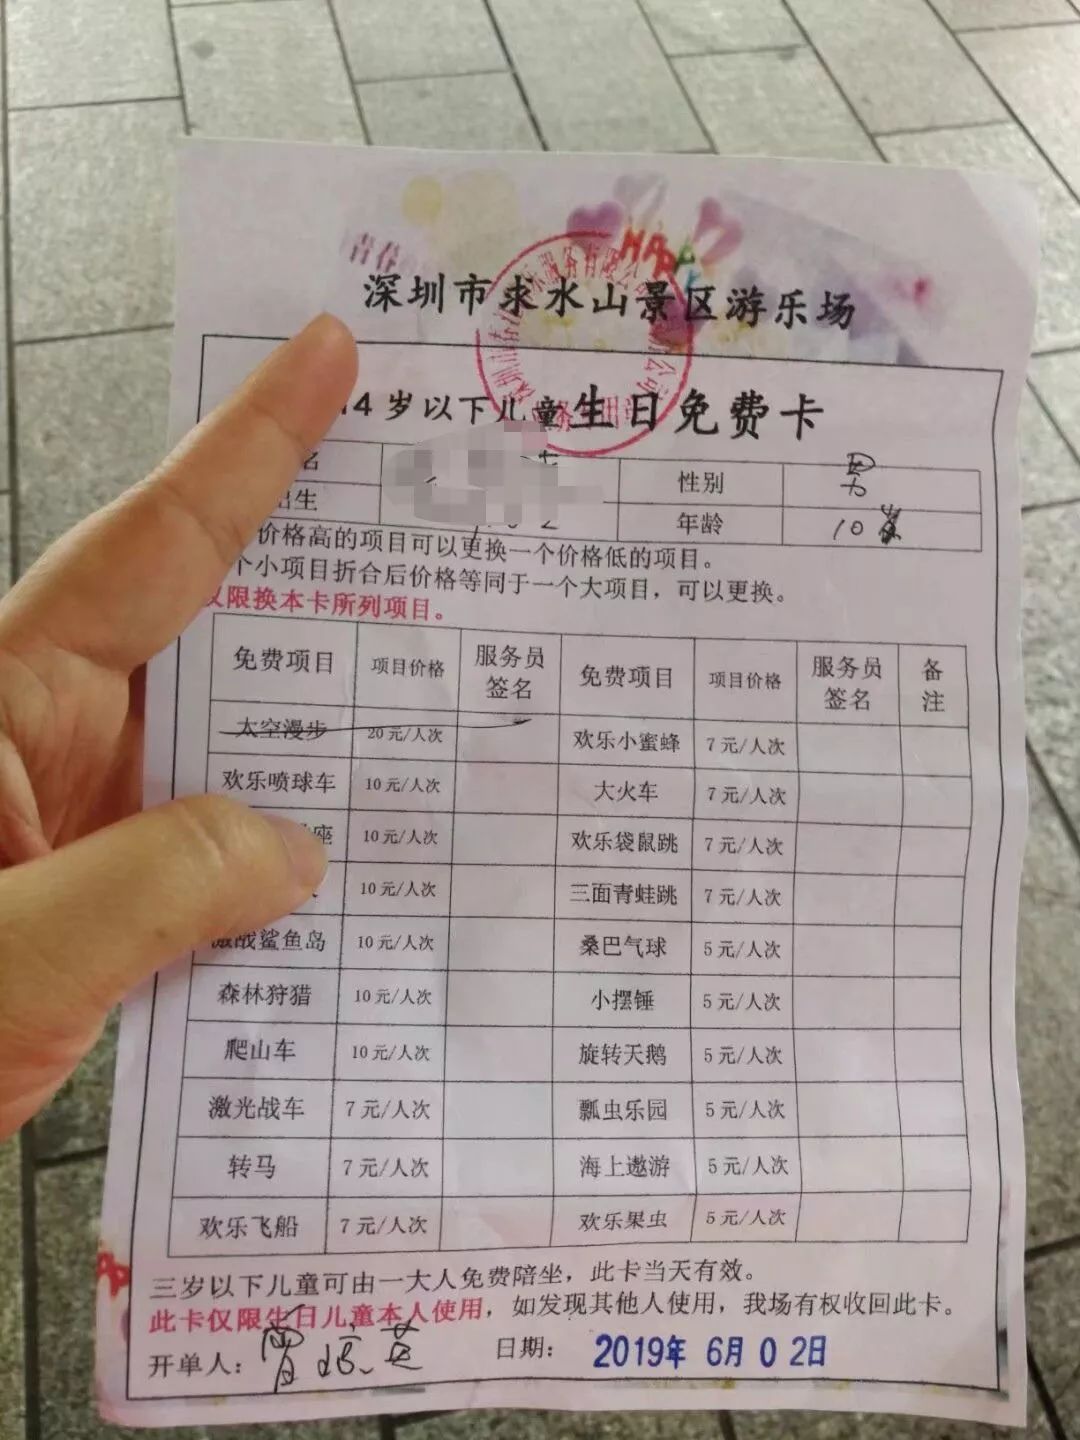 青春
HAPP
深圳市求水山景区游乐场
14岁以下儿童生日免费卡
名 性别 男
出生 年龄 10岁
价格高的项目可以更换一个价格低的项目。
个小项目折合后价格等同于一个大项目，可以更换。
仅限换本卡所列项目。
免费项目 项目价格 服务员签名 免费项目 项目价格 服务员签名 备注
太空漫步 20元/人次 欢乐小蜜蜂 7元/人次
欢乐喷球车 10元/人次 大火车 7元/人次
座 10元/人次 欢乐袋鼠跳 7元/人次
10元/人次 三面青蛙跳 7元/人次
激战鲨鱼岛 10元/人次 桑巴气球 5元/人次
森林狩猎 10元/人次 小摆锤 5元/人次
爬山车 10元/人次 旋转天鹅 5元/人次
激光战车 7元/人次 瓢虫乐园 5元/人次
转马 7元/人次 海上遨游 5元/人次
欢乐飞船 7元/人次 欢乐果虫 5元/人次
三岁以下儿童可由一大人免费陪坐，此卡当天有效。
此卡仅限生日儿童本人使用，如发现其他人使用，我场有权收回此卡。
开单人： 日期： 2019年 6月 0 2日